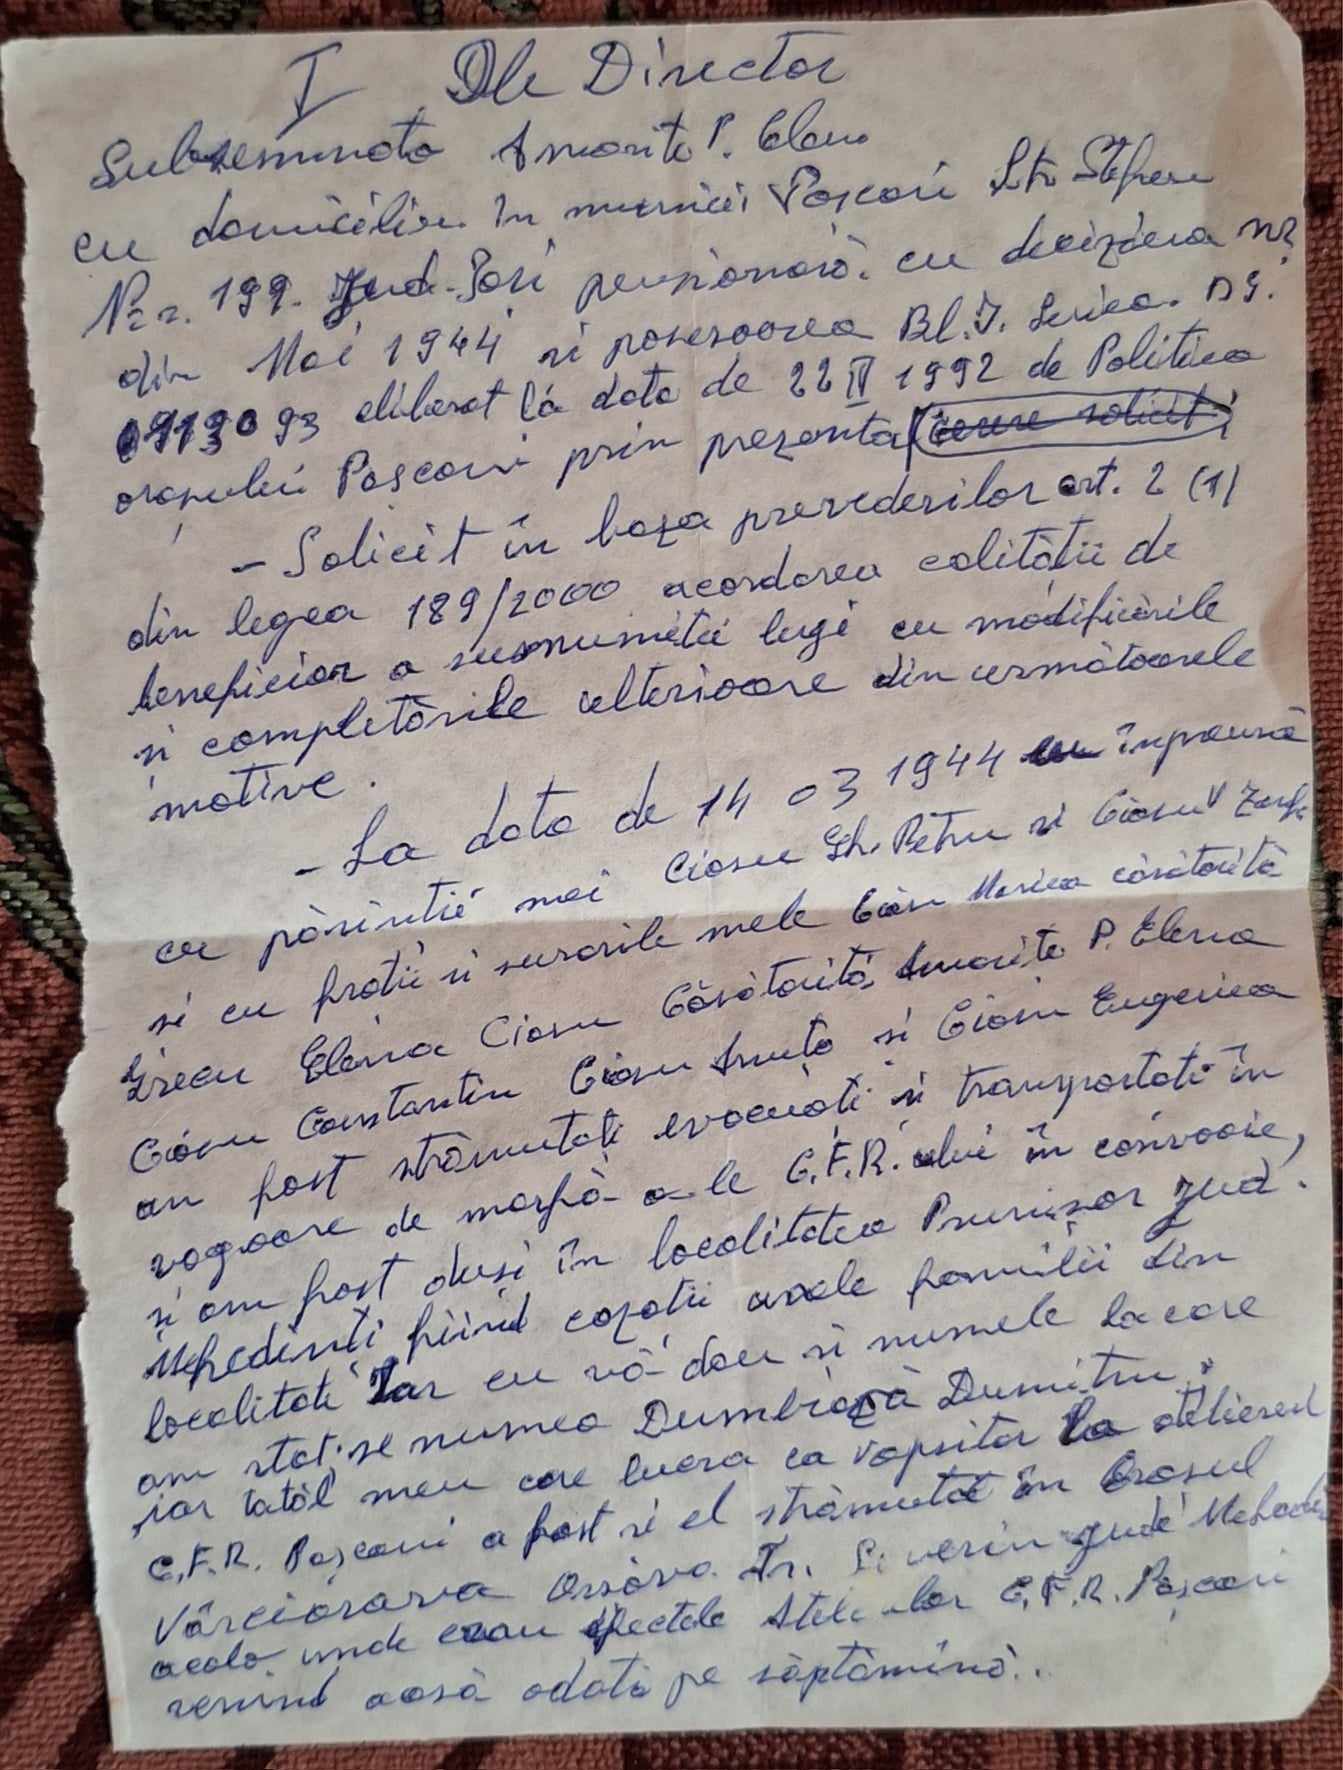 I Dle Director
Subsemnata Amarite P. Elena
cu domiciliu în munici Pașcani Str. Stefan
Nr. 199. Jud. Iasi pensionară cu decizia nr
din Mai 1944 si posesoarea Bl. I. Seria. D G.
0913093 eliberat la data de 22 IV 1992 de Politia
orasului Pașcani prin prezenta cerere solicit
- Solicit în baza prevederilor art. 2 (1)
din legea 189/2000 acordarea calității de
beneficiar a susnumitei legi cu modificările
si completările ulterioare din următoarele
motive.
- La data de 14 03 1944 înpreună
cu părintii mei Ciosu Gh. Petru si Ciosu V
si cu fratii si surorile mele Ciosu Marica căsătorită
Grecu Elena Ciosu Căsătorită Amarite P. Elena
Ciosu Constantin Ciosu Anuta si Ciosu Eugenica
am fost strămutati evacuati si transportati în
vagoane de marfă a-le C.F.R. ului în convoaie,
si am fost duși în localitatea Prunișor Jud.
Mehedinti fiind cazatii unele familii din
localitate Iar eu vă dau si numele la care
am stat se numea Dumbravă Dumitru.
iar tatăl meu care lucra ca vopsitor la atelierul
C.F.R. Pașcani a fost si el strămutat în Orasul
Vârciorova Orsova Tr. Severin Jude
acolo unde erau C.F.R. Pașcani
venind acasă odată pe săptămînă.